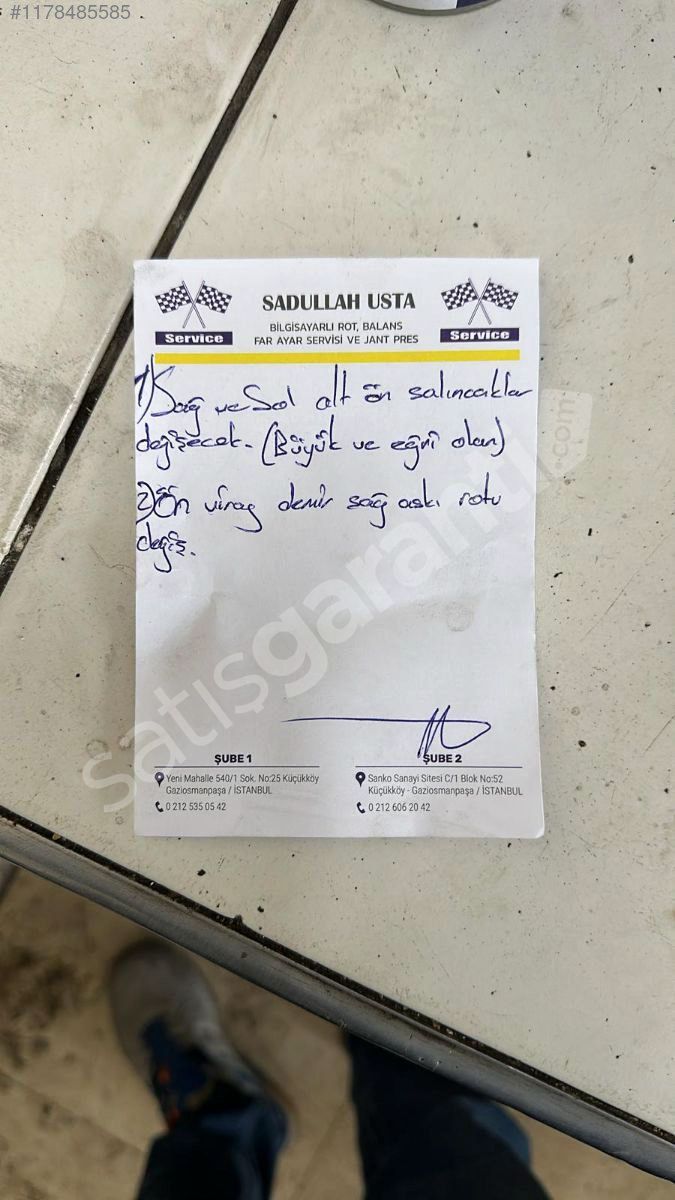 #1178485585
SADULLAH USTA
BİLGİSAYARLI ROT, BALANS
FAR AYAR SERVİSİ VE JANT PRES
Service
Service
1) Sağ ve Sol alt ön salıncaklar
değişecek. (Büyük ve eğri olan)
2) Ön viraj demir sağ askı rotu
değiş.
satışgaranti.com
ŞUBE 1
Yeni Mahalle 540/1 Sok. No:25 Küçükköy
Gaziosmanpaşa / İSTANBUL
0 212 535 05 42
ŞUBE 2
Sanko Sanayi Sitesi C/1 Blok No:52
Küçükköy - Gaziosmanpaşa / İSTANBUL
0 212 606 20 42